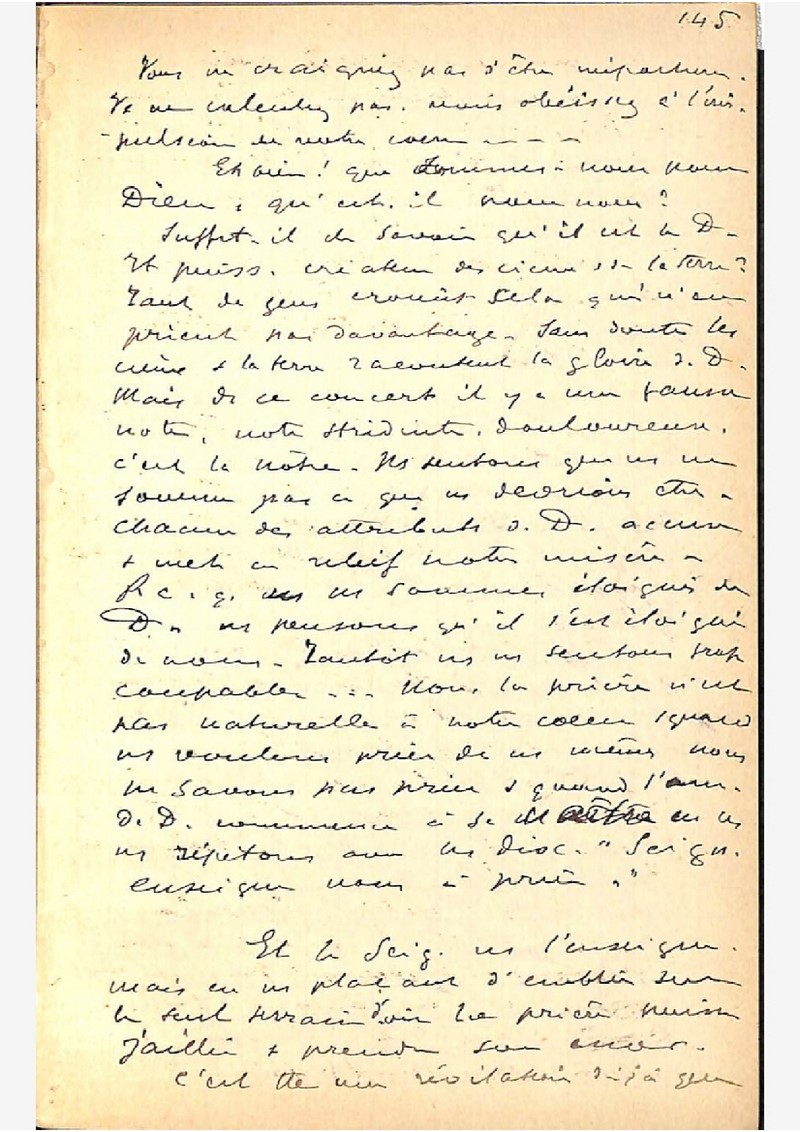 145
Vous ne craignez pas d'être importun.
Vs ne calculez pas. mais obéissez à l'im-
-pulsion de votre cœur - - - -
Eh bien ! que sommes-nous pour
Dieu, qu'est-il pour nous ?
Suffit-il de savoir qu'il est le D-
tt puiss. créateur des cieux & de la terre ?
Tant de gens croient cela qui n'en
prient pas davantage. Sans doute les
cieux & la terre racontent la gloire d. D.
Mais de ce concert il y a une fausse
note, note stridente, douloureuse,
c'est la nôtre. Ns sentons que ns ne
sommes pas ce que ns devrions être -
Chacun des attributs d. D. accuse
& met en relief notre misère -
P. c. q. ns ns sommes éloignés de
D. ns pensons qu'il s'est éloigné
de nous - Tantôt ns ns sentons trop
coupables ... Non, la prière n'est
pas naturelle à notre cœur & quand
ns voulons prier de ns mêmes nous
ne savons pas prier & quand l'am.
de D. commence à se en ns
ns répétons avec les disc. " Seign.
enseigne nous à prier . "
Et le Seig. ns l'enseigne.
mais en ns plaçant d'emblée sur
le seul terrain d'où la prière puisse
jaillir & prendre son essor.
C'est tte une révélation déjà que